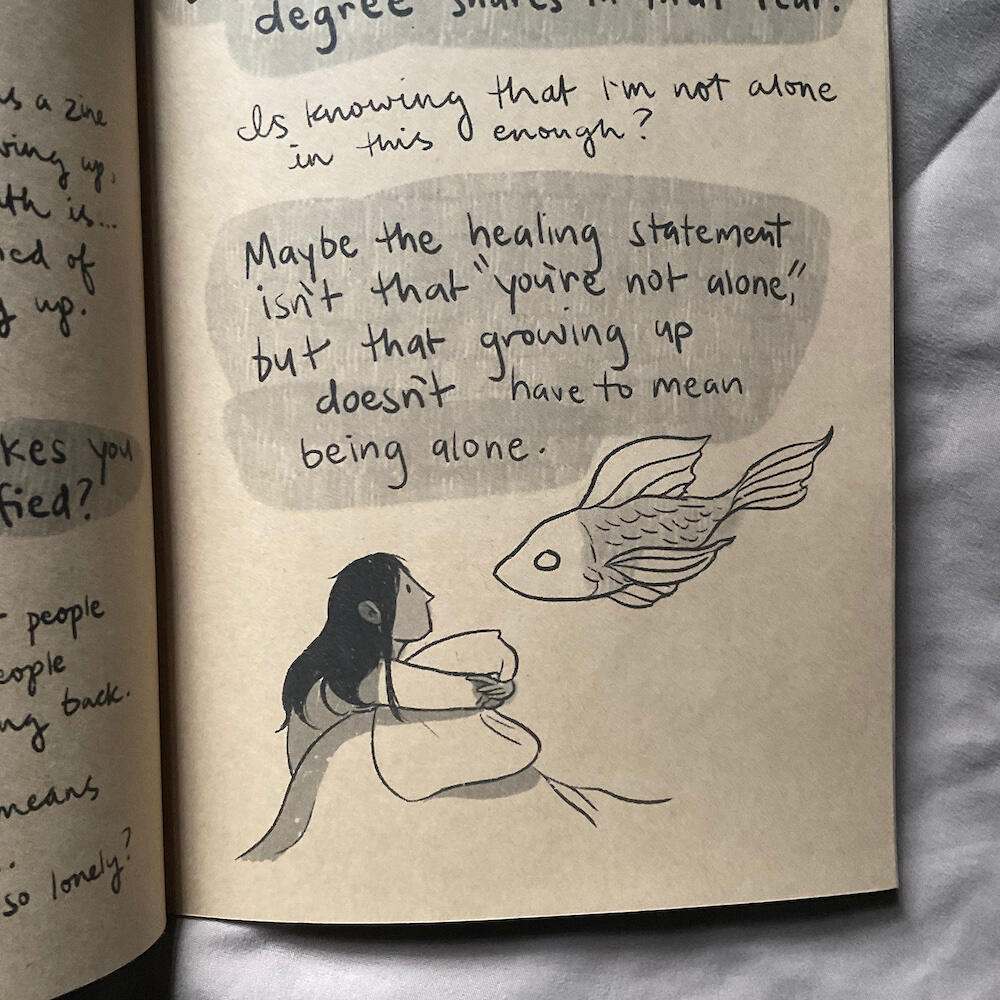 a zine
up,
is...
of
up.
you
people
back.
means
so lonely?
degree shares in that fear.
Is knowing that I'm not alone
in this enough?
Maybe the healing statement
isn't that "you're not alone,"
but that growing up
doesn't have to mean
being alone.